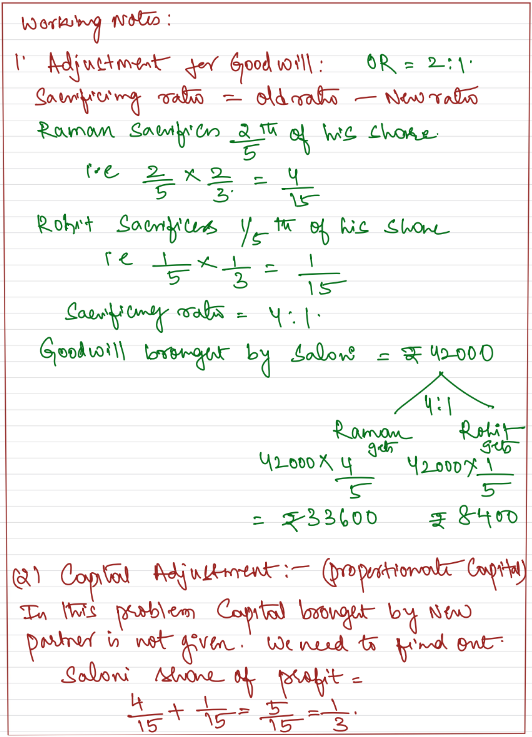 Working Notes:
1. Adjustment for Goodwill: OR = 2:1.
Sacrificing ratio = old ratio – New ratio
Raman Sacrifices 2/5 th of his share.
i.e 2/5 × 2/3 = 4/15
Rohit Sacrifices 1/5 th of his share
ie 1/5 × 1/3 = 1/15
Sacrificing ratio = 4:1.
Goodwill brought by Saloni = ₹ 42000
4:1
Raman gets Rohit gets
42000 × 4/5 42000 × 1/5
= ₹33600 ₹ 8400
(2) Capital Adjustment:– (proportionate Capital)
In this problem Capital brought by New
partner is not given. We need to find out.
Saloni share of profit =
4/15 + 1/15 = 5/15 = 1/3.